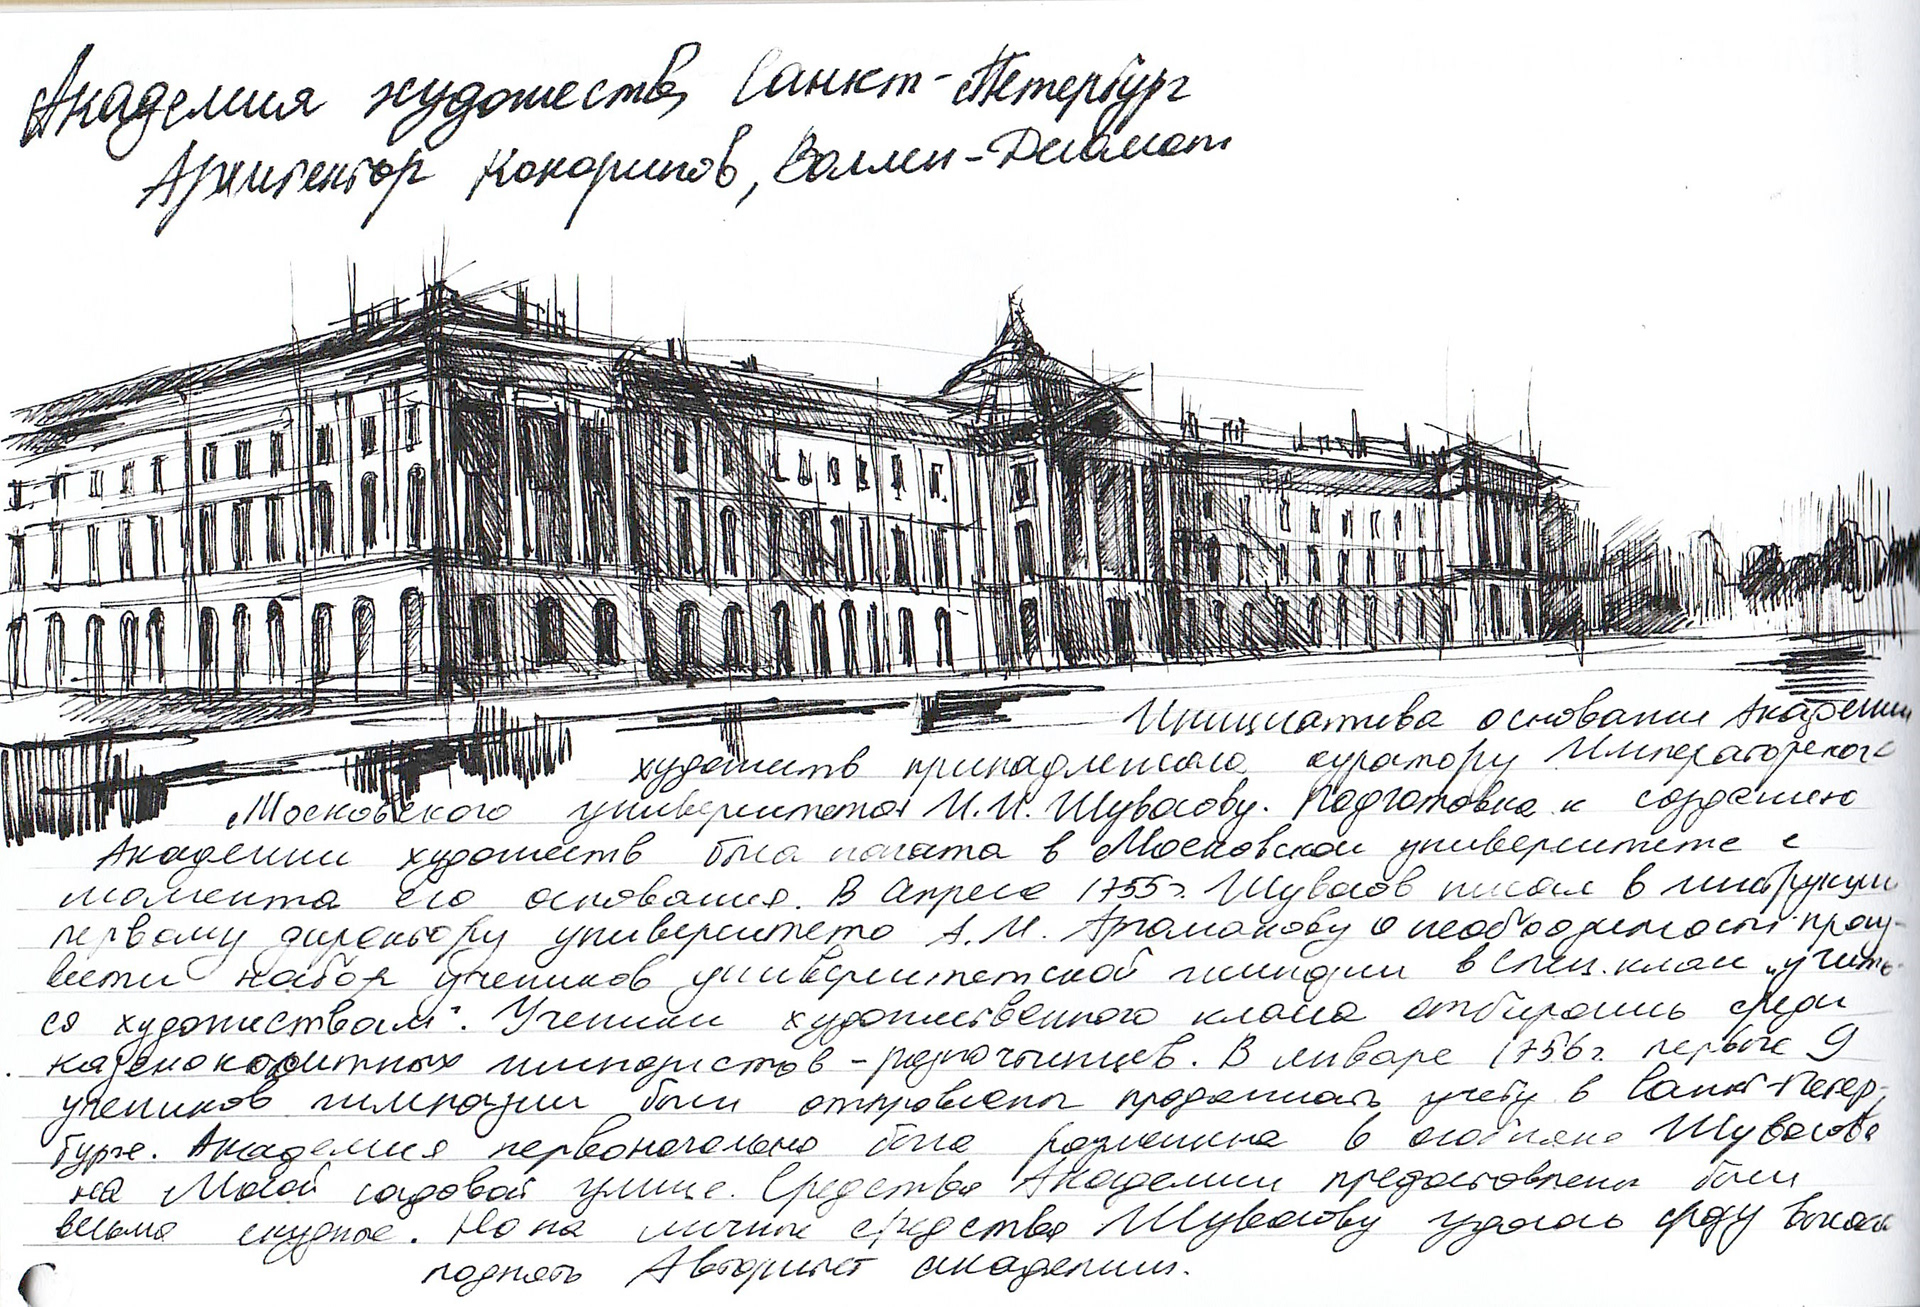 Академия художеств, Санкт-Петербург
Архитектор Кокоринов, Валлен-Деламот
Инициатива основания Академии
художеств принадлежала куратору Императорского
Московского университета И.И. Шувалову. Подготовка к созданию
Академии художеств была начата в Московском университете с
момента его основания. В апреле 1755г. Шувалов писал в инструкции
первому директору университета А.М. Аргамакову о необходимости произ-
вести набор учеников университетской гимназии в спец. класс „учить-
ся художествам". Ученики художественного класса отбирались среди
казеннокоштных гимназистов-разночинцев. В январе 1756г. первые 9
учеников гимназии были отправлены продолжать учебу в Санкт-Петер-
бурге. Академия первоначально была размещена в особняке Шувалова
на Малой садовой улице. Средства Академии предоставлены были
весьма скудные. Но на личные средства Шувалову удалось сразу высоко
поднять Авторитет академии.